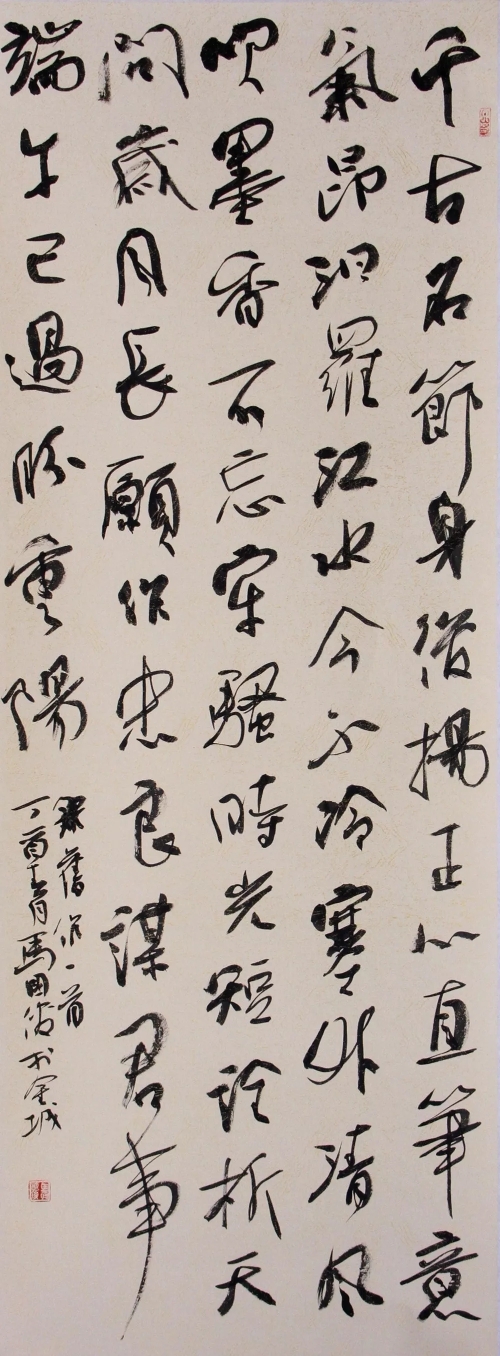 千古名節身後揚正心直筆意
氣昂汨羅江水今不冷塞外清風
吹墨香不忘牢騷時光短詮析天
問歲月長願作忠良謀君事
端午已過盼重陽
錄舊作一首
丁酉馬國俊於金城